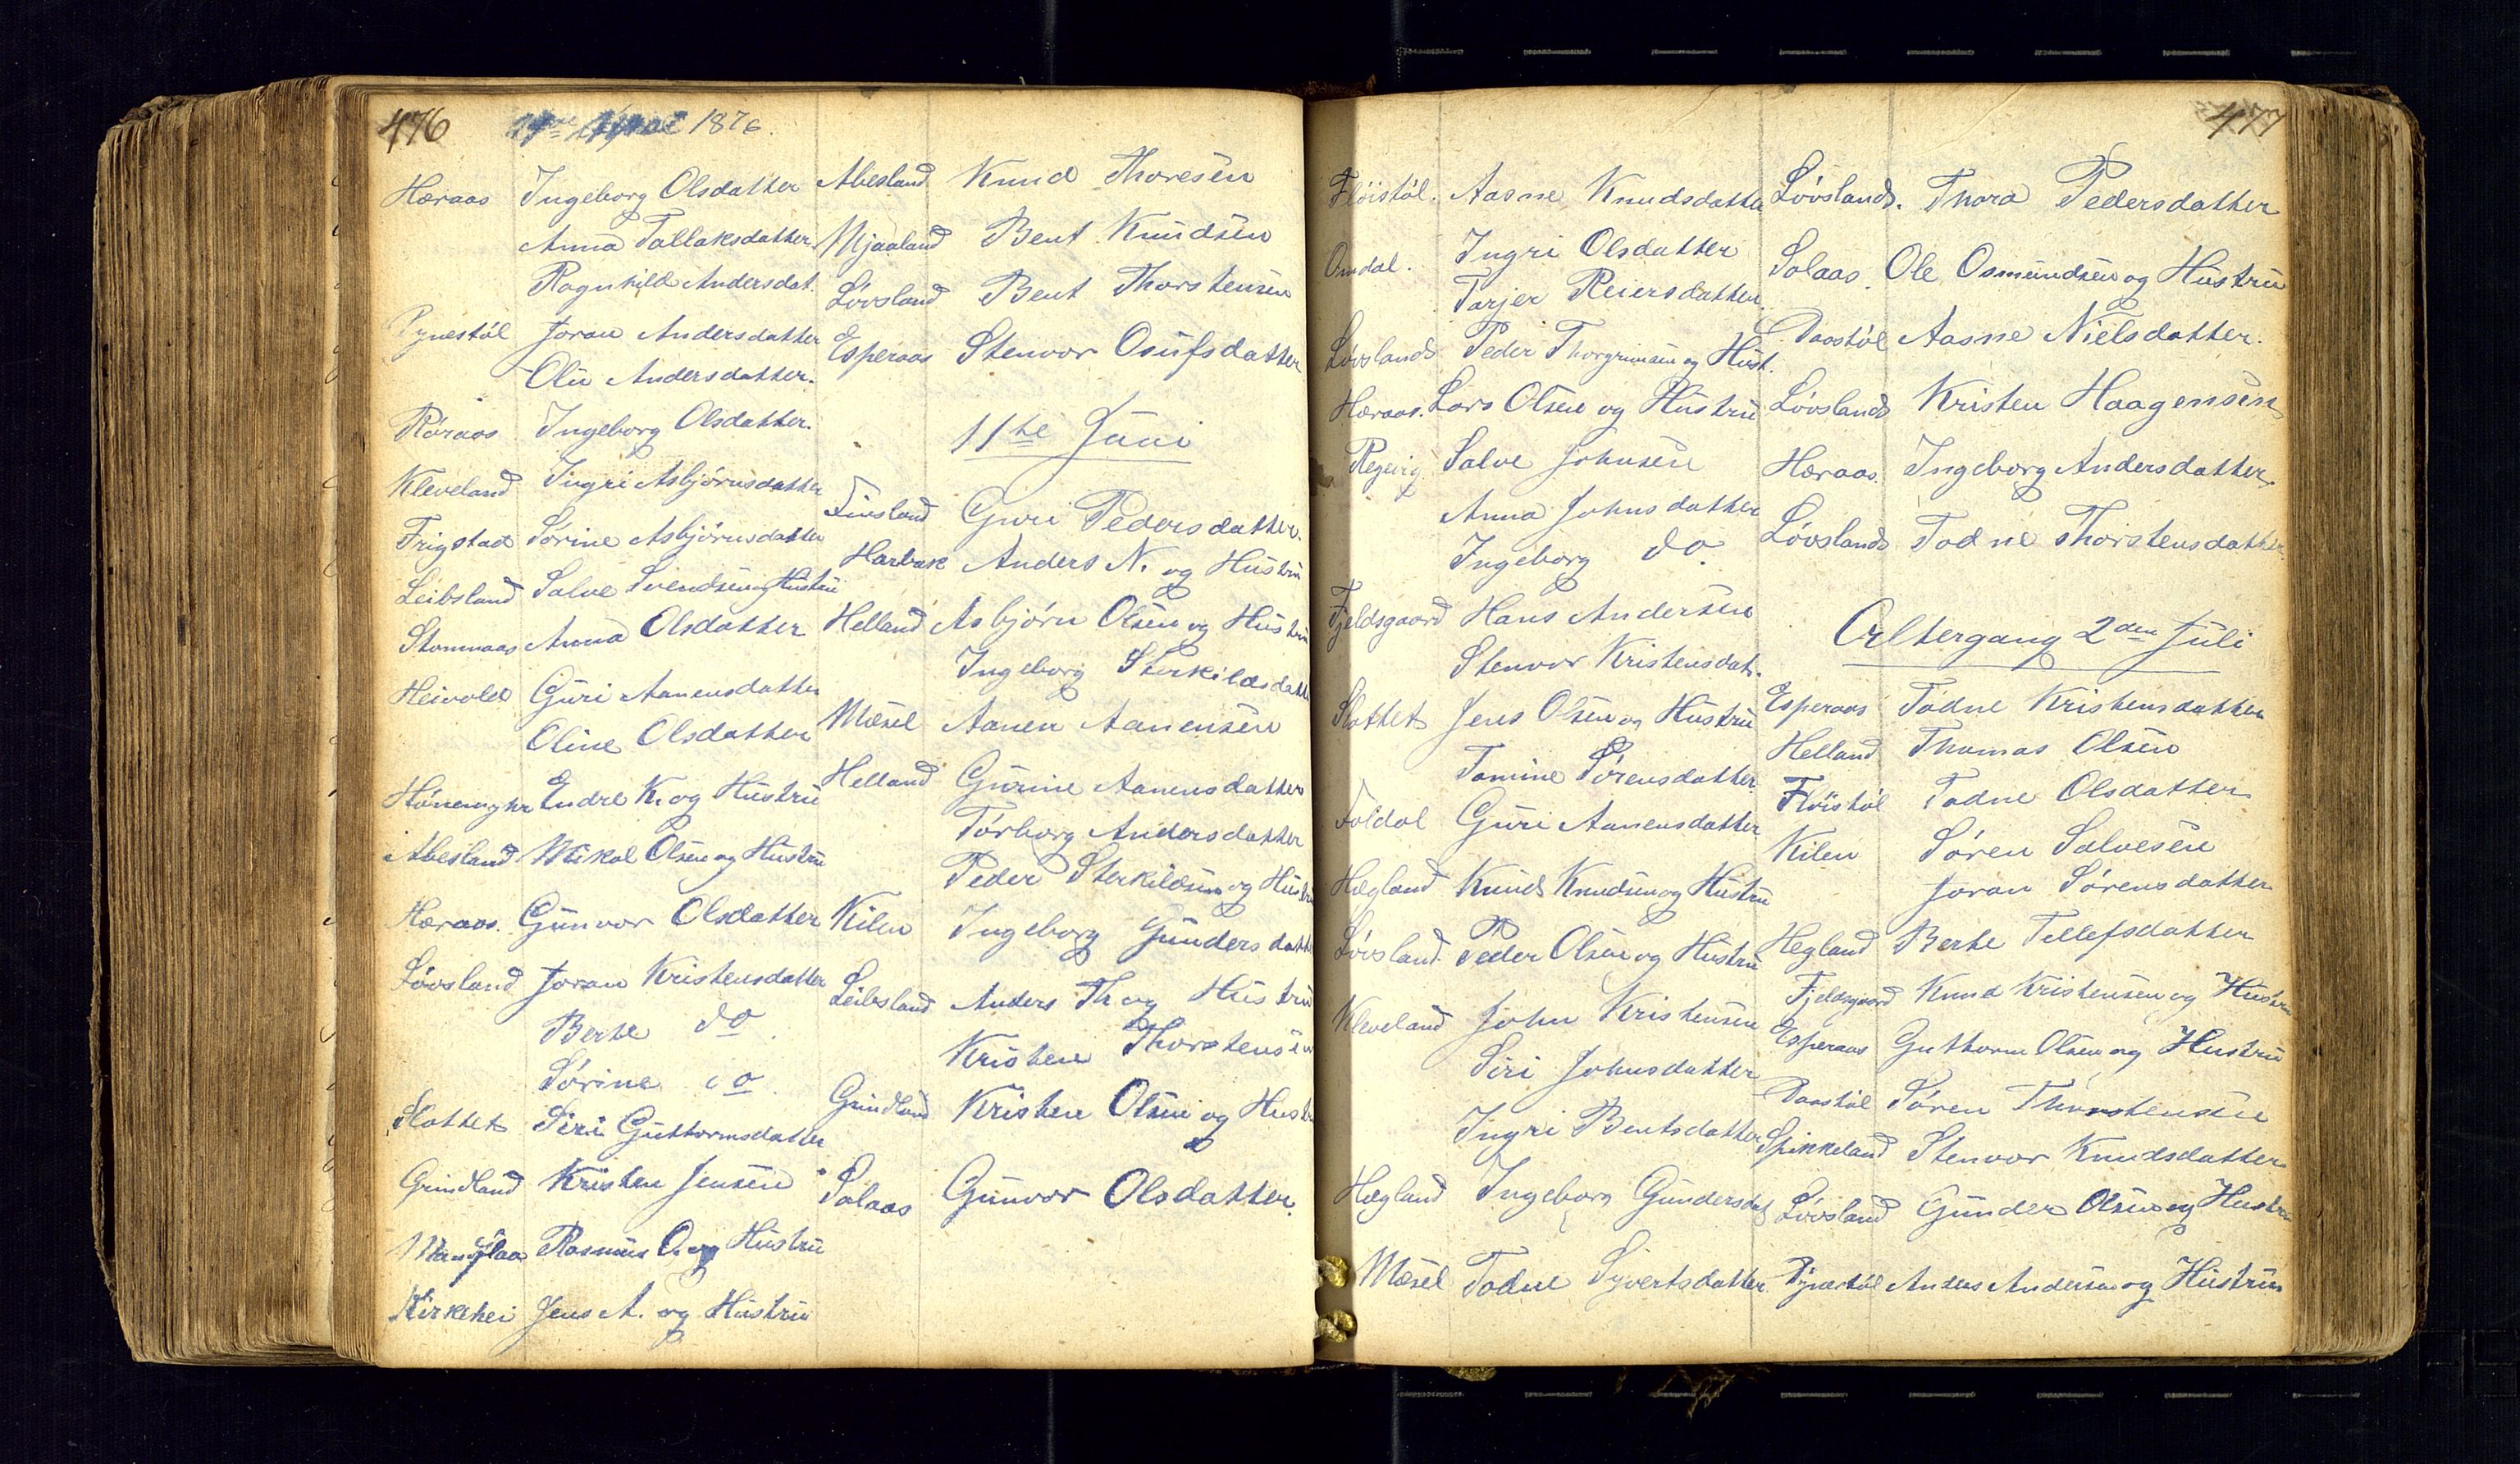 476
1876.
Hæraas Ingeborg Olsdatter
Anna Tallaksdatter
Ragnhild Andersdat.
Pynestøl Joran Andersdatter
Olie Andersdatter.
Røraas Ingeborg Olsdatter.
Kleveland Ingri Asbjørnsdatter
Frigstad Sørine Asbjørnsdatter
Leibsland Salve Svendsen og Hustru
Stommaas Anna Olsdatter
Heivold Guri Aanensdatter
Oline Olsdatter
Hønemyhr Endre K. og Hustru
Abesland Mikal Olsen og Hustru
Hæraas. Gunvor Olsdatter
Løvsland Joran Kristensdatter
Berte do.
Sørine do.
Slottet Siri Guttormsdatter
Grindland Kristen Jensen
Mandflaa Rasmus O. og Hustru
Kirkehei Jens A. og Hustru
Abesland Knud Thoresen
Mjaaland Bent Knudsen
Løvsland Bent Thorstensen
Esperaas Stenvor Osufsdatter
11te Juni
Finsland Guri Pedersdatter.
Harbak Anders N. og Hustru
Helland Asbjørn Olsen og Hustru
Ingeborg Sterkildsdatter
Mæsel Aanen Aanensen
Helland Gurine Aanensdatter
Tørborg Andersdatter
Peder Sterkildsen og Hustru
Kilen Ingeborg Gundersdatt
Leibsland Anders Th og Hustru
Kristen Thorstensen
Grindland Kristen Olsen og Hustr
Solaas Gunvor Olsdatter.
477
Fløistøl. Aasne Knudsdatter
Omdal. Ingri Olsdatter
Tarjer Reiersdatter.
Løvsland Peder Thorgrimsen og Hust.
Hæraas. Lars Olsen og Hustru
Regevig Salve Johnsen
Anna Johnsdatter
Ingeborg do.
Fjeldsgaard Hans Andersen
Stenvor Kristensdat.
Slottet Jens Olsen og Hustru
Tomine Sørensdatter.
Foldal Guri Aanensdatter
Hægland Knud Knudsen og Hustru
Løvsland. Peder Olsen og Hustru
Kleveland John Kristensen
Siri Johnsdatter
Ingri Bentsdatter
Hægland Ingeborg Gundersdat
Mæsel Todne Syvertsdatter
Løvsland. Thora Pedersdatter
Solaas. Ole Osmundsen og Hustru
Daastøl Aasne Nielsdatter.
Løvsland Kristen Haagensen
Hæraas. Ingeborg Andersdatter.
Løvsland Todne Thorstensdatter
Altergang 2den Juli
Esperaas Todne Kristensdatter
Helland Thomas Olsen
Fløistøl Todne Olsdatter
Kilen Søren Salvesen
Joran Sørensdatter
Hegland Berte Tellefsdatter
Fjeldsgaard Knud Kristensen og Hustru
Esperaas Guttorm Olsen og Hustru
Daastøl Søren Thorstensen
Spikkeland Stenvor Knudsdatter
Løvsland Gunder Olsen og Hustru
Pynestøl Anders Andersen og Hustru